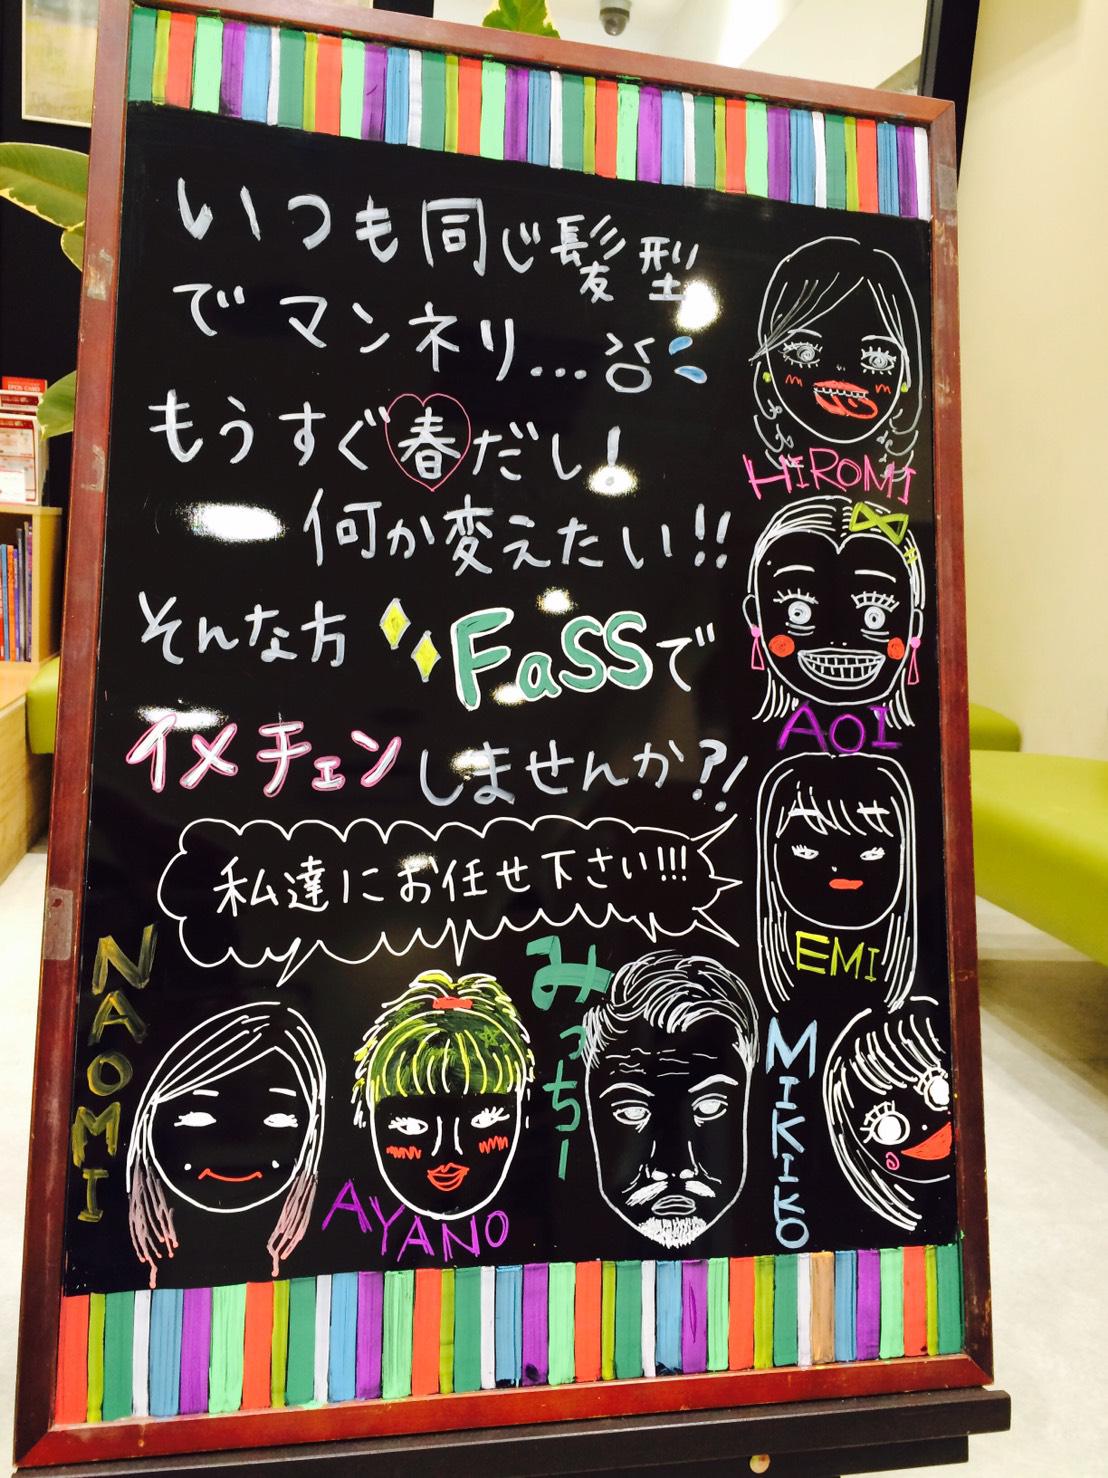 いつも同じ髪型
でマンネリ...
もうすぐ春だし!
何か変えたい!!
そんな方 FaSSで
イメチェンしませんか?!
私達にお任せ下さい!!!
HIROMI
AOI
EMI
MIKIKO
みっちー
AYANO
NAOMI